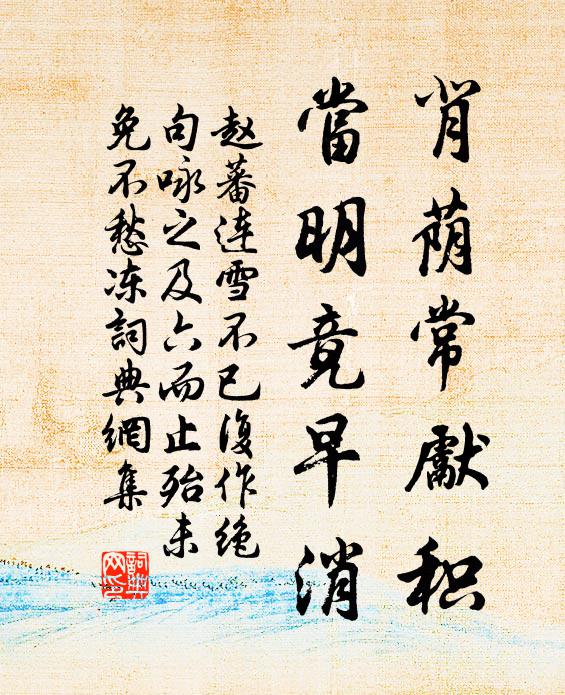 肖荫常獻积
當明竟早消
赵蕃連雪不已復作绝
句咏之及六而止殆未
免不愁冻詞典網集
詞典